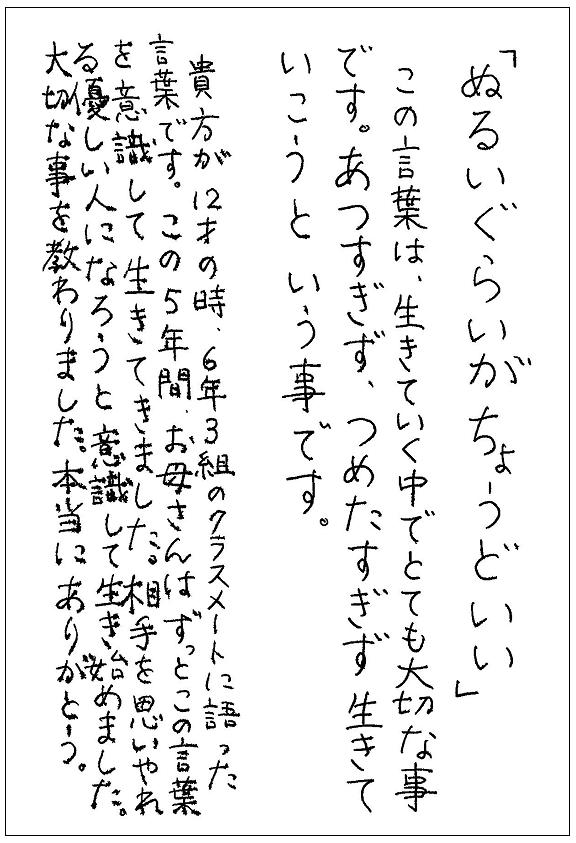 「ぬるいぐらいがちょうどいい」
この言葉は、生きていく中でとても大切な事
です。あつすぎず、つめたすぎず生きて
いこうという事です。
貴方が12才の時、6年3組のクラスメートに語った
言葉です。この5年間、お母さんはずっとこの言葉
を意識して生きてきました。相手を思いやれ
る優しい人になろうと意識して生き始めました。
大切な事を教わりました。本当にありがとう。